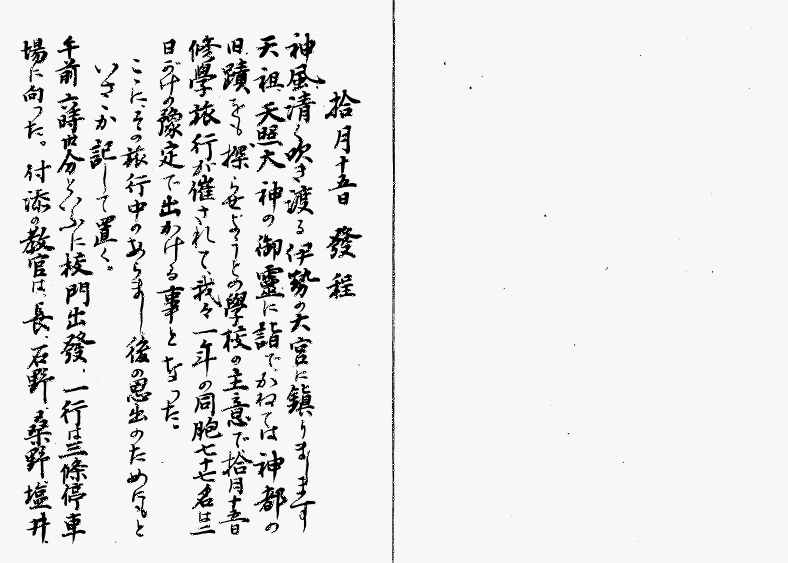 拾月十五日　發程
神風清く吹き渡る伊勢の大宮に鎮りまします
天祖天照大神の御靈に詣でかねては神都の
旧蹟をも探らせようとの學校の主意で拾月十五日
修學旅行が催されて、我々一年の同胞七十七名は三
日がけの豫定で出かける事となつた。
こゝにその旅行中のあらまし後の思出のためにもと
いさゝか記して置く。
午前六時廿分といふに校門出發、一行は三條停車
場に向つた。付添の教官は、長、石野、桑野、塩井、